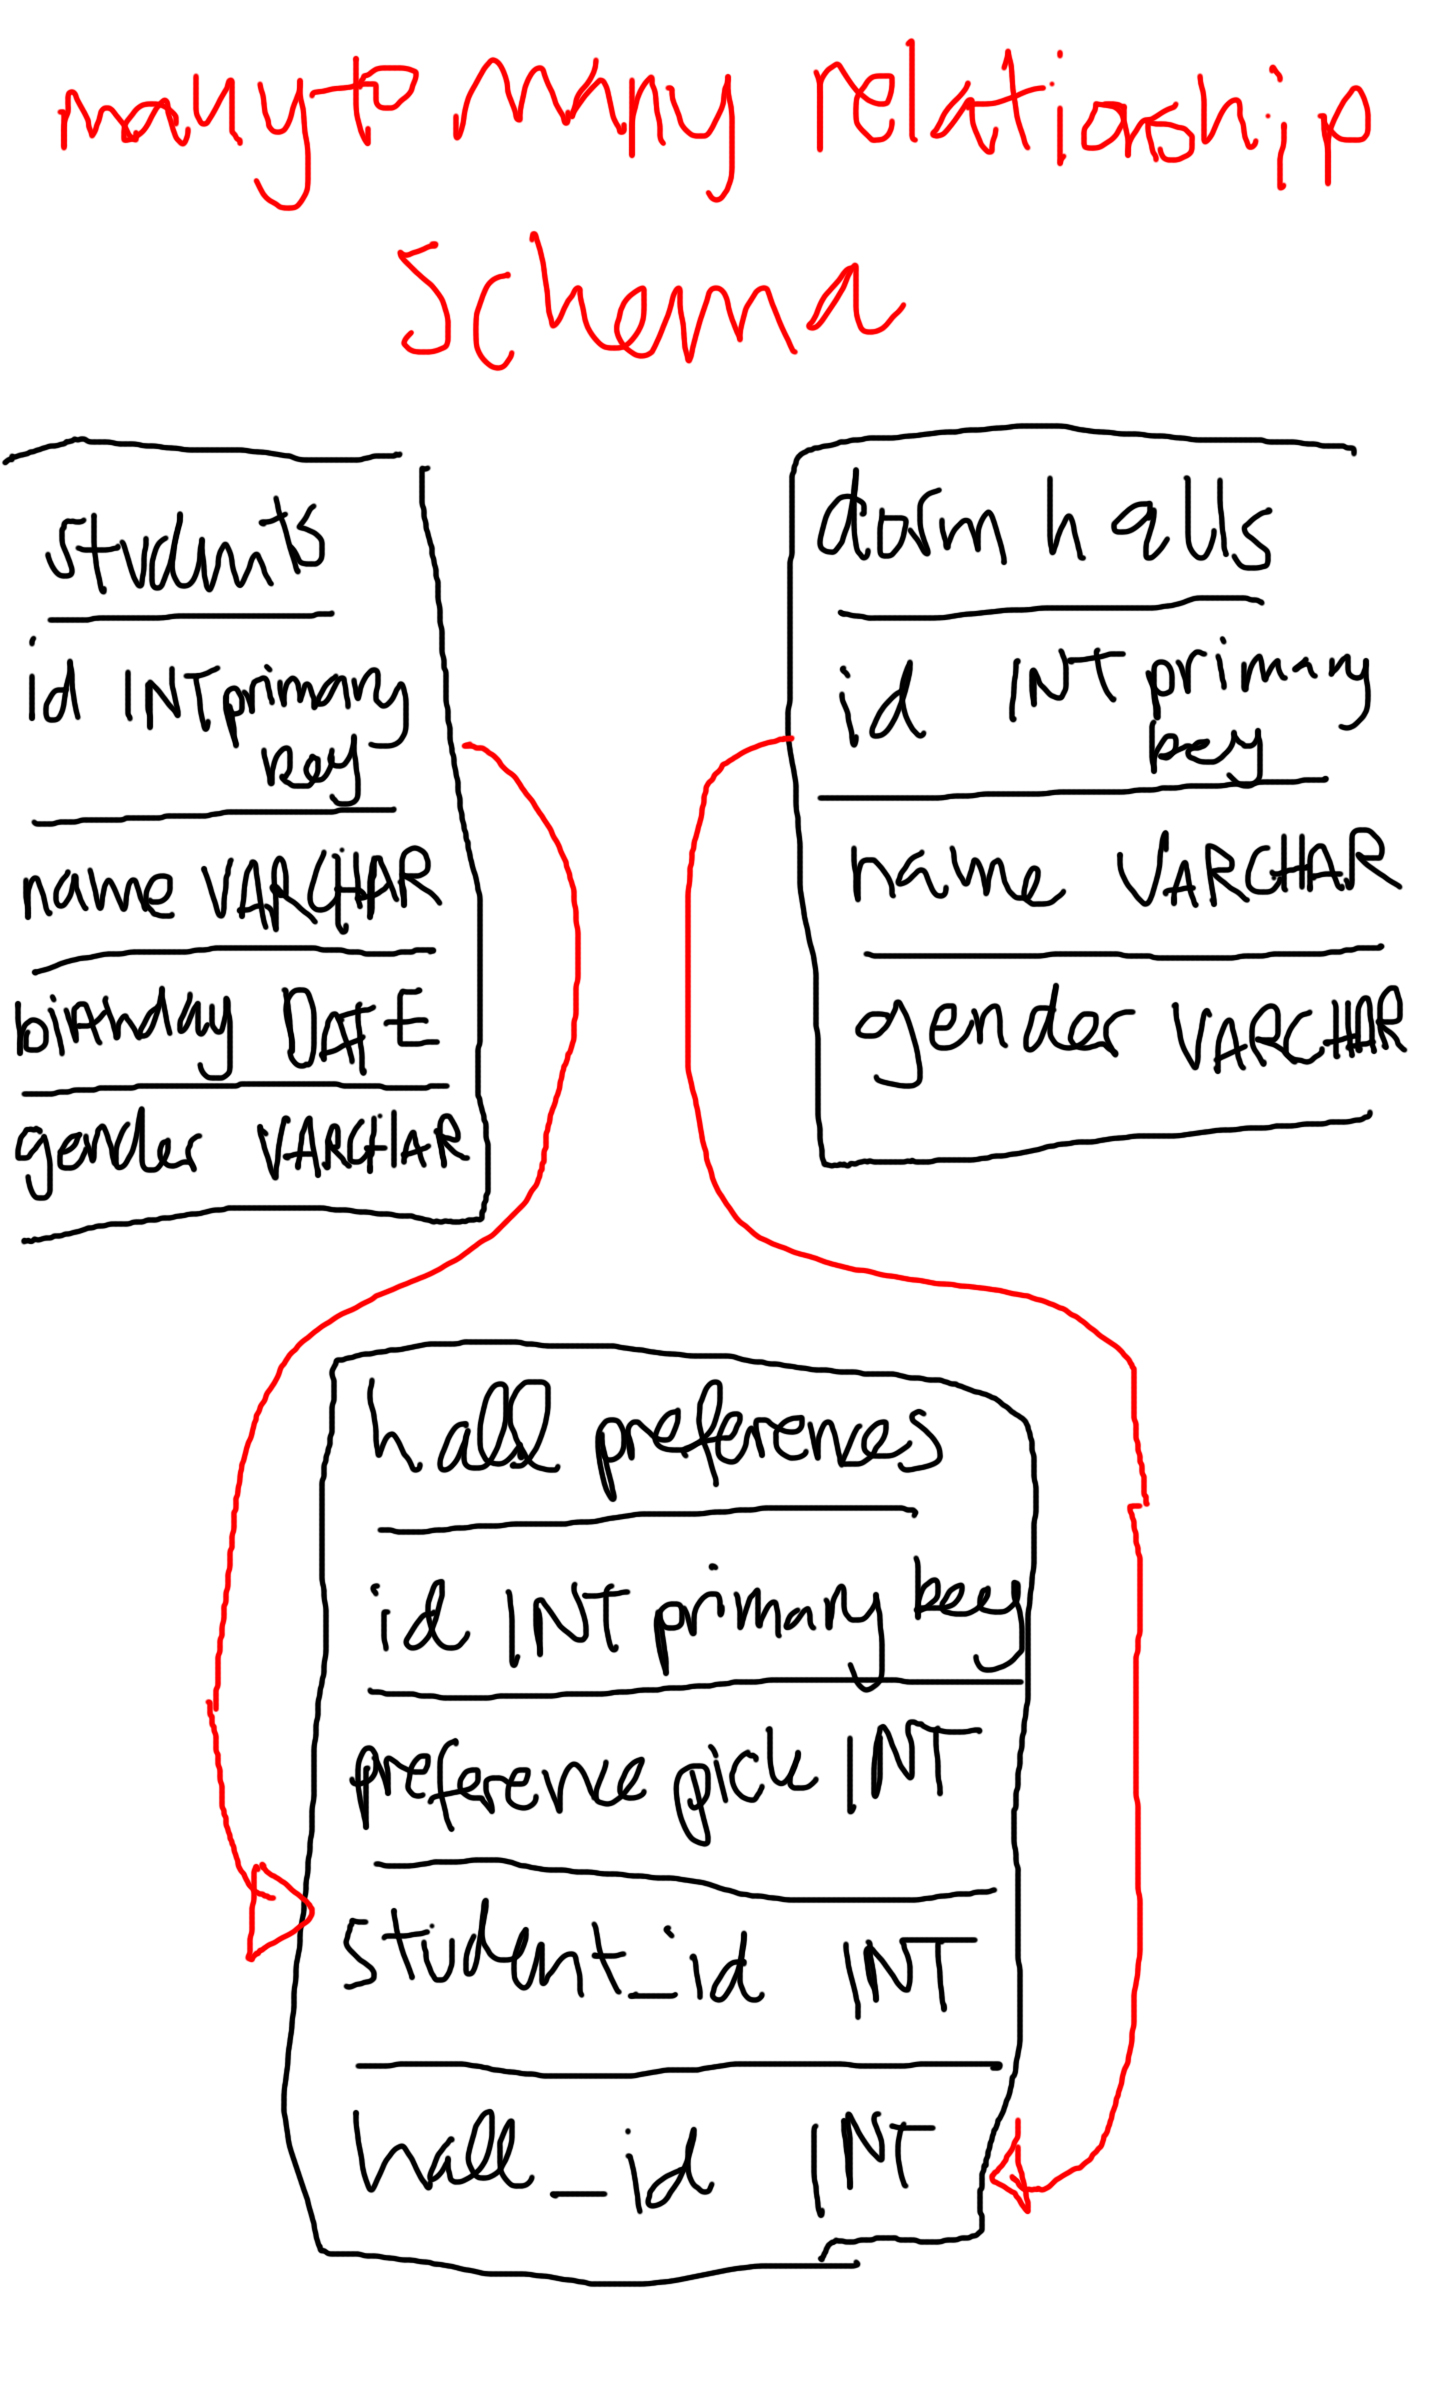 many to many relationship
Schema
students
id INT primary
key
name VARCHAR
birthday DATE
gender VARCHAR
dorm halls
id INT primary
key
name VARCHAR
gender VARCHAR
hall preferences
id INT primary key
preference pick INT
student_id INT
hall_id INT